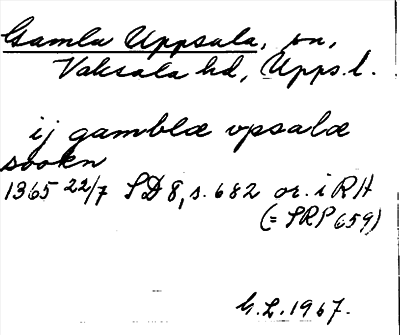 Gamla Uppsala, sn,
Vaksala hd, Upps.l.
ij gamblæ vpsalæ
sookn
1365 22/7 SD 8, s. 682 or. i RA
(= SRP 659)
G.L. 1967.